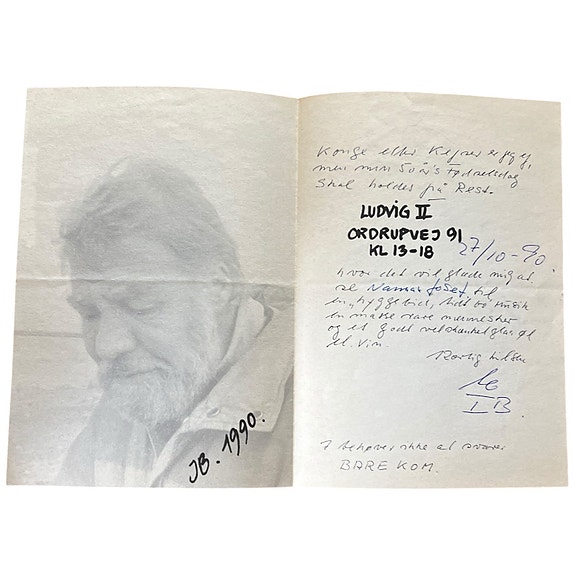 JB. 1990.
Konge eller Kejser er jeg ej,
men min 50 års Fødselsdag
skal holdes på Rest.
LUDVIG II
ORDRUPVEJ 91
KL 13-18
27/10-90
hvor det vil glæde mig at
se til
en hyggetid, lidt god musik
en masse rare mennesker
og et godt velskænket glas øl
el. vin.
Kærlig hilsen
IB
I behøver ikke at svare
BARE KOM.